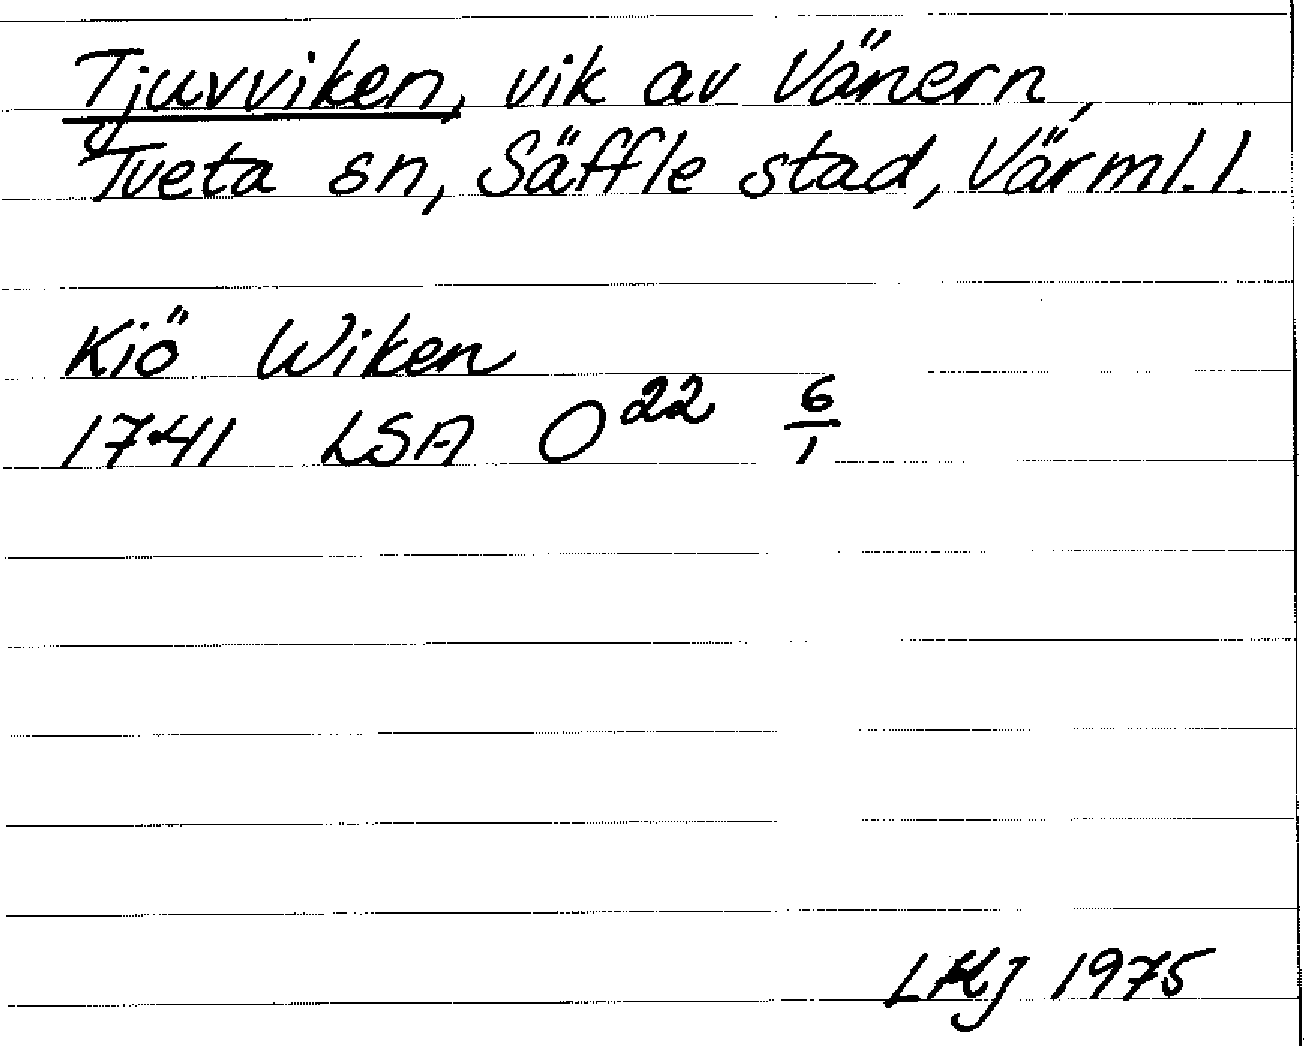 Tjuvviken, vik av Vänern,
Tveta sn, Säffle stad, Värml. l.
Kiö Wiken
1741 LSA O²² 6/1
LHJ 1975